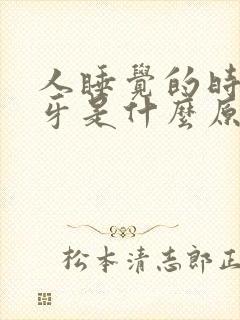 人睡覺的時
牙是什麼原
松本清志郎正